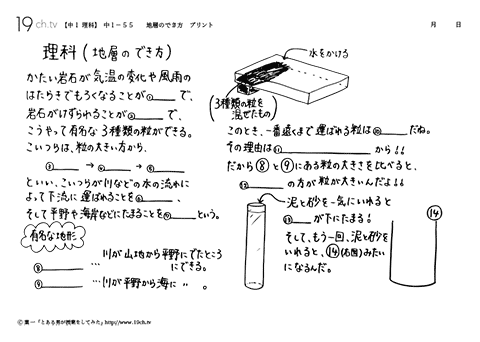 19ch.tv 【中1 理科】 中1-55 地層のでき方 プリント 月 日
理科 (地層のでき方)
かたい岩石が気温の変化や風雨の
はたらきでもろくなることが①____で、
岩石がけずられることが②____で、
こうやって有名な3種類の粒ができる。
こいつらは、粒の大きい方から、
③____→④____→⑤____
といい、こいつらが川などの水の流れに
よって下流に運ばれることを⑥____、
そして平野や海岸などにたまることを⑦____という。
有名な地形
⑧____… 川が山地から平野にでたところにできる。
⑨____… 川が平野から海に 〃 。
水をかける
(3種類の粒を混ぜたもの)
このとき、一番遠くまで運ばれる粒は⑩____だね。
その理由は⑪____から!!
だから⑧と⑨にある粒の大きさを比べると、
⑫____の方が粒が大きいんだよ!!
泥と砂を一気にいれると
⑬____が下にたまる!
そして、もう一回、泥と砂を
いれると、⑭(右図)みたい
になるんだ。
⑭
Ⓒ 葉一「とある男が授業をしてみた」http://www.19ch.tv